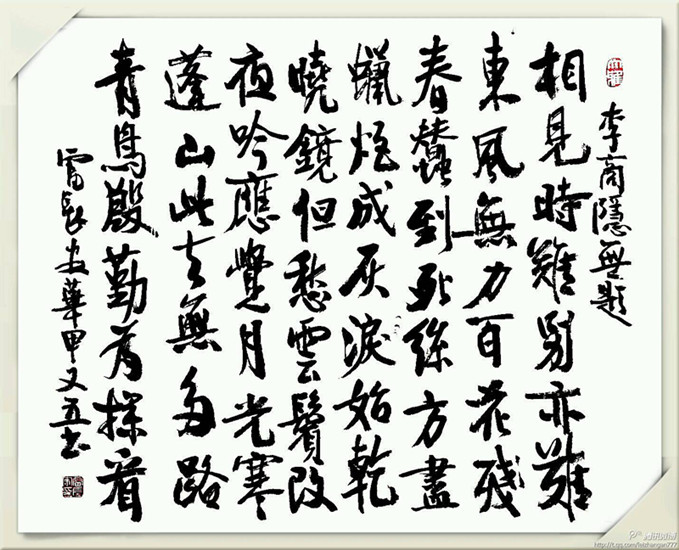 李商隱無題
相見時難別亦難
東風無力百花殘
春蠶到死絲方盡
蠟炬成灰淚始乾
曉鏡但愁雲鬢改
夜吟應覺月光寒
蓬山此去無多路
青鳥殷勤為探看
雷長安華甲又五書
http://t.qq.com/leizhangan777